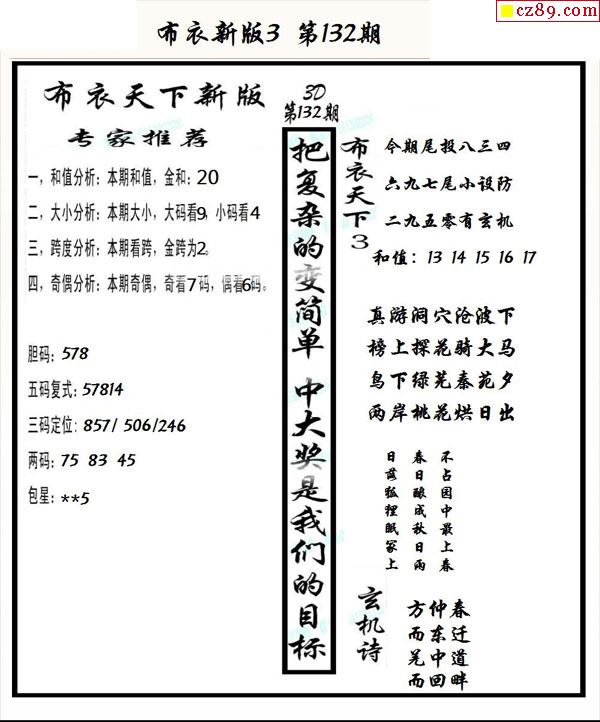 cz89.com
布衣新版3 第132期
布衣天下新版
专家推荐
一，和值分析：本期和值，金和：20
二，大小分析：本期大小，大码看9，小码看4
三，跨度分析：本期看跨，金跨为2。
四，奇偶分析：本期奇偶，奇看7码，偶看6码。
胆码：578
五码复式：57814
三码定位：857/ 506/246
两码：75 83 45
包星：**5
3D
第132期
把复杂的变简单 中大奖是我们的目标
布衣天下3
今期尾投八三四
六九七尾小设防
二九五零有玄机
和值：13 14 15 16 17
真游洞穴沧波下
榜上探花骑大马
鸟下绿芜秦苑夕
两岸桃花烘日出
不占园中最上春
春日酿成秋日雨
日落狐狸眠冢上
玄机诗
方仲春
而东迁
羌中道
而回畔